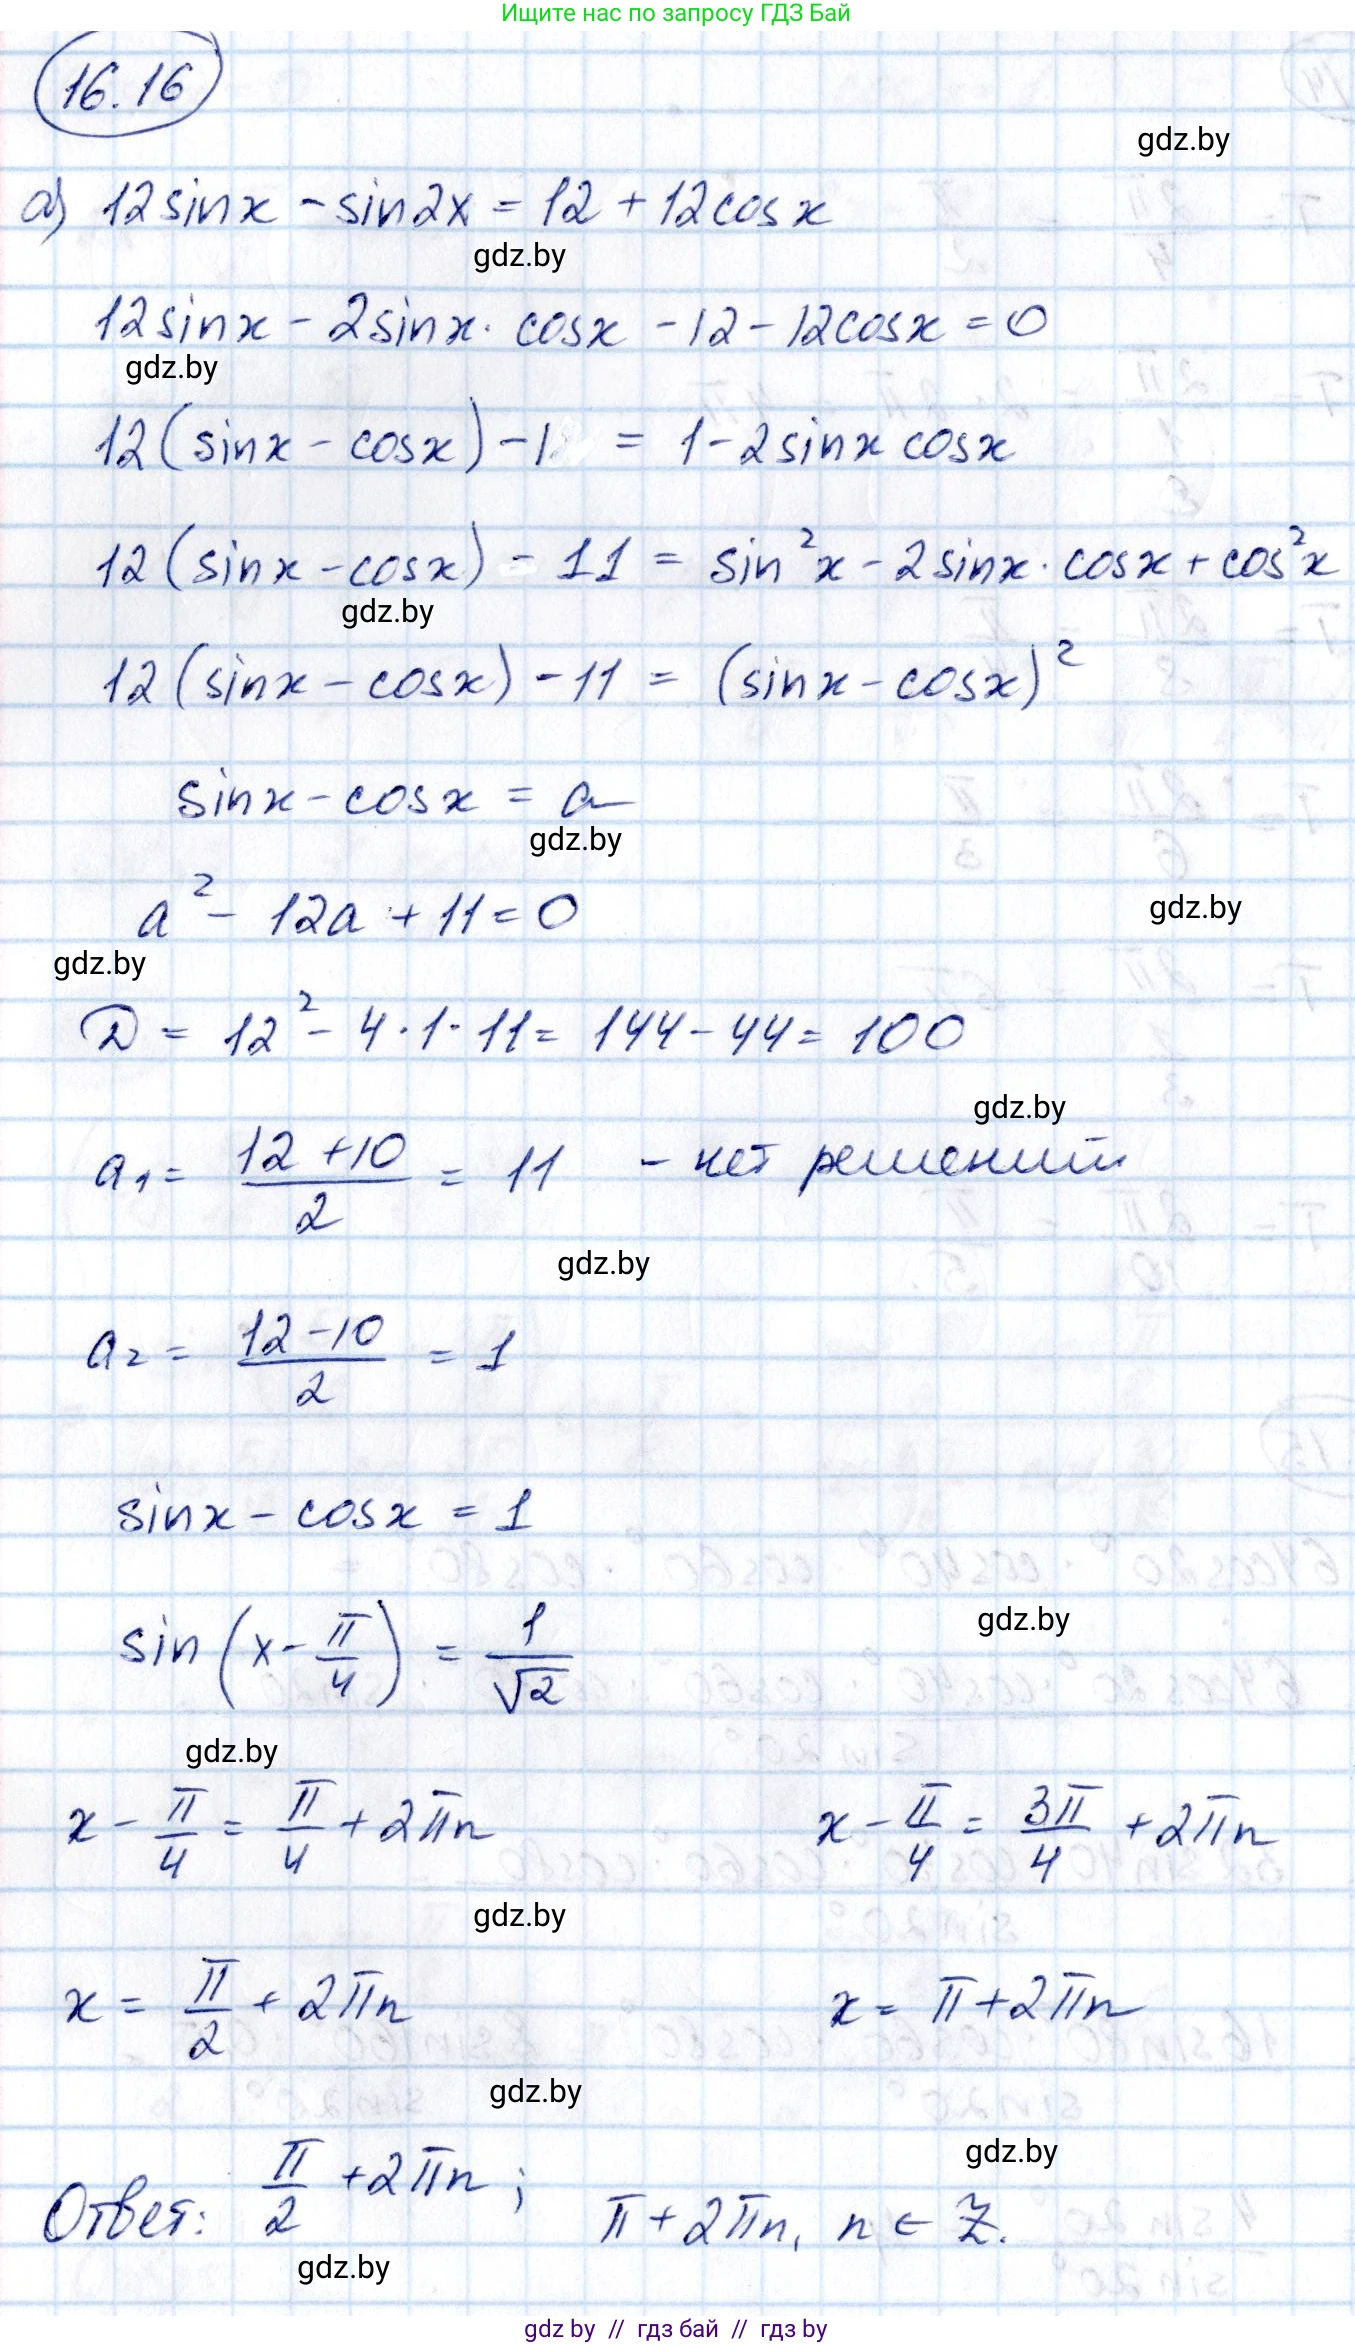 Ищите нас по запросу ГДЗ Бай
16.16
gdz.by
а) 12sinx - sin2x = 12 + 12cosx
gdz.by
12sinx - 2sinx · cosx - 12 - 12cosx = 0
gdz.by
12(sinx - cosx) - 1 = 1 - 2sinx cosx
12(sinx - cosx) - 11 = sin²x - 2sinx · cosx + cos²x
gdz.by
12(sinx - cosx) - 11 = (sinx - cosx)²
sinx - cosx = a
gdz.by
a² - 12a + 11 = 0
gdz.by
gdz.by
D = 12² - 4 · 1 · 11 = 144 - 44 = 100
gdz.by
a₁ = (12 + 10)/2 = 11 - нет решений
gdz.by
a₂ = (12 - 10)/2 = 1
sinx - cosx = 1
gdz.by
sin(x - π/4) = 1/√2
gdz.by
x - π/4 = π/4 + 2πn x - π/4 = 3π/4 + 2πn
gdz.by
x = π/2 + 2πn x = π + 2πn
gdz.by
gdz.by
Ответ: π/2 + 2πn; π + 2πn, n ∈ Z.
gdz.by
gdz.by // гдз бай // гдз by